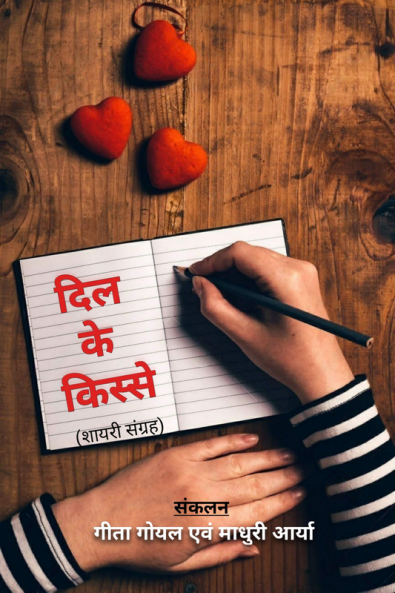 दिल
के
किस्से
(शायरी संग्रह)
संकलन
गीता गोयल एवं माधुरी आर्या